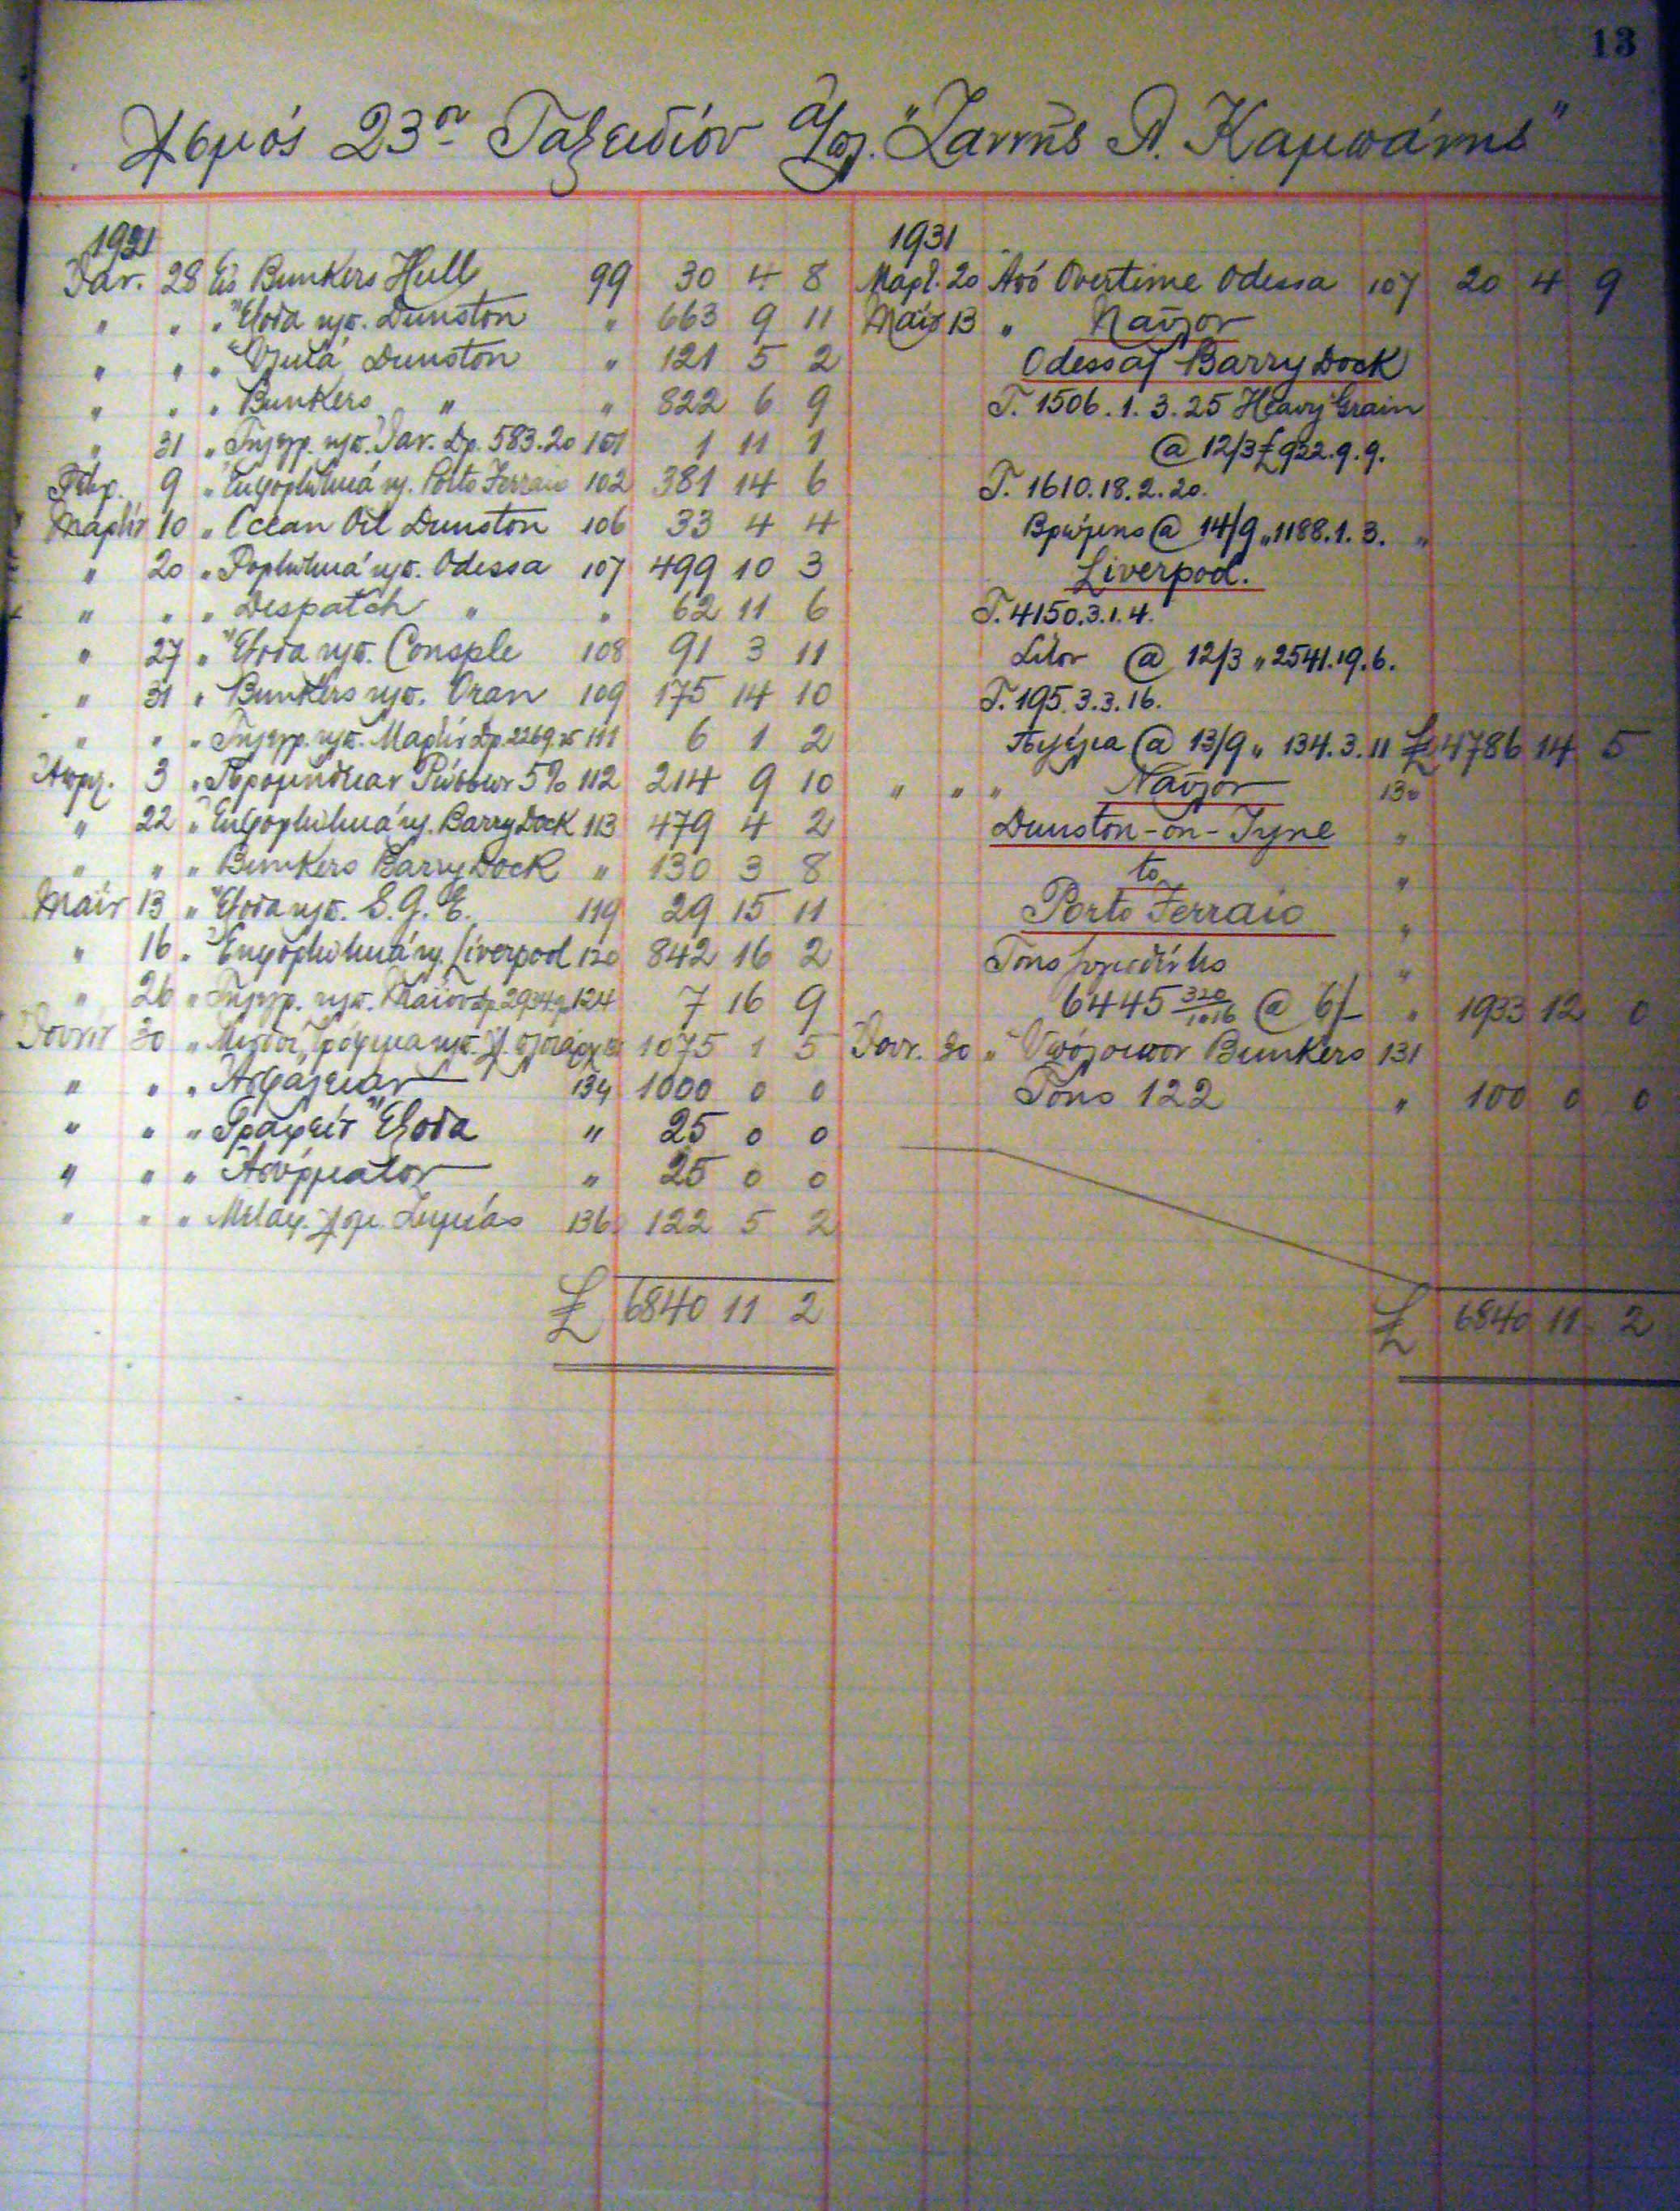 13
Λ/σμός 23ον Ταξειδίον Α/οπ. "Ζαννῆς Λ. Καμπάνης"
1931
Ἰαν. 28 Εἰς Bunkers Hull 99 30 4 8
" " " Ἔξοδα πρ. Dunston " 663 9 11
" " " Ὑλικά Dunston " 121 5 2
" " " Bunkers " " 822 6 9
" 31 " Τηλεγρ. Ἰαν. Δρ. 583.20 101 1 11 1
Φεβρ. 9 " Ἐκφορτωτικά Porto Ferraio 102 381 14 6
Μαρτίου 10 " Ocean Oil Dunston 106 33 4 4
" 20 " Φορτωτικά Odessa 107 499 10 3
" " " Despatch " " 62 11 6
" 27 " Ἔξοδα Consple 108 91 3 11
" 31 " Bunkers Oran 109 175 14 10
" " " Τηλεγρ. Μαρτίου Δρ. 2269.75 111 6 1 2
Ἀπρλ. 3 " Προμήθειαν Ρώσσων 5% 112 214 9 10
" 22 " Ἐκφορτωτικά Barry Dock 113 479 4 2
" " " Bunkers Barry Dock " 130 3 8
Μαΐου 13 " Ἔξοδα S.G.E. 119 29 15 11
" 16 " Ἐκφορτωτικά Liverpool 120 842 16 2
" 26 " Τηλεγρ. Μαΐου Δρ. 2934 124 7 16 9
Ἰουνίου 30 " Μισθοί, Τρόφιμα 1075 1 5
" " " Ἀσφάλειαν 134 1000 0 0
" " " Γραφείου Ἔξοδα " 25 0 0
" " " Ἀσύρματον " 25 0 0
" " " Μεταφ. Ζημίας 136 122 5 2
£ 6840 11 2
1931
Μαρτ. 20 Ἀπό Overtime Odessa 107 20 4 9
Μαΐου 13 " Ναῦλον
Odessa/Barry Dock
T. 1506.1.3.25 Heavy Grain
@ 12/3 £ 922.9.9.
T. 1610.18.2.20.
Βρώμης @ 14/9 " 1188.1.3. "
Liverpool.
T. 4150.3.1.4.
Σῖτον @ 12/3 " 2541.19.6.
T. 195.3.3.16.
@ 13/9 " 134.3.11 £ 4786 14 5
" " " Ναῦλον 130
Dunston-on-Tyne "
to "
Porto Ferraio "
Tons "
6445 320/1016 @ 6/- " 1933 12 0
Ἰουν. 30 " Ὑπόλοιπον Bunkers 131
Tons 122 " 100 0 0
£ 6840 11 2